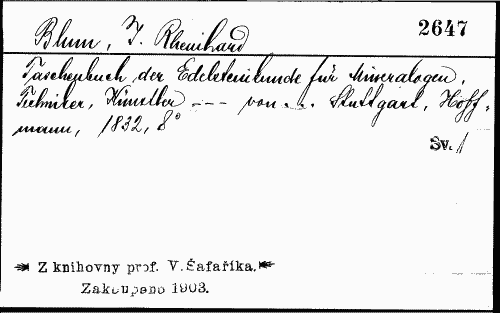 Blum, J. Rheinhard
2647
Taschenbuch der Edelsteinkunde für Mineralogen,
Techniker, Künstler --- von... Stuttgart, Hoff-
mann, 1832, 8°
Sv. 1
Z knihovny prof. V. Šafaříka.
Zakoupeno 1903.